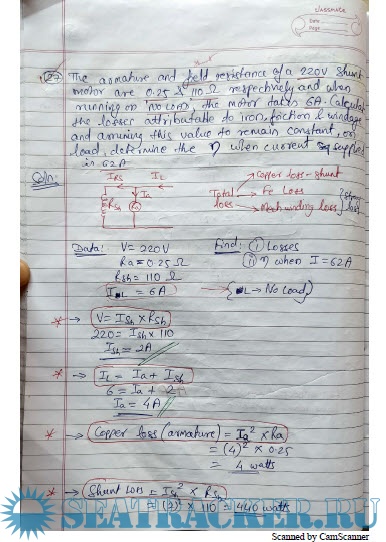 classmate
Date
Page
27 The armature and field resistance of a 220V shunt
motor are 0.25 & 110 Ω respectively and when
running on NO LOAD, the motor takes 6A. Calculate
the losses attributable to iron, friction & windage
and assuming this value to remain constant, on
load, determine the η when current supplied
is 62A
Soln:
ISh IL
Rsh Ia
Total loss
Copper loss - shunt
Fe Loss
Mech winding loss
Data: V = 220V Find: (i) Losses
Ra = 0.25 Ω (ii) η when I = 62A
Rsh = 110 Ω
IL = 6A → {L → No load}
* → V = Ish × Rsh
220 = Ish × 110
Ish = 2A
* → IL = Ia + Ish
6 = Ia + 2
Ia = 4A
* → Copper loss (armature) = Ia² × Ra
= (4)² × 0.25
= 4 watts
* → Shunt loss = Ish² × Rsh
= (2)² × 110 = 440 watts
SEATRACKER.RU
Scanned by CamScanner